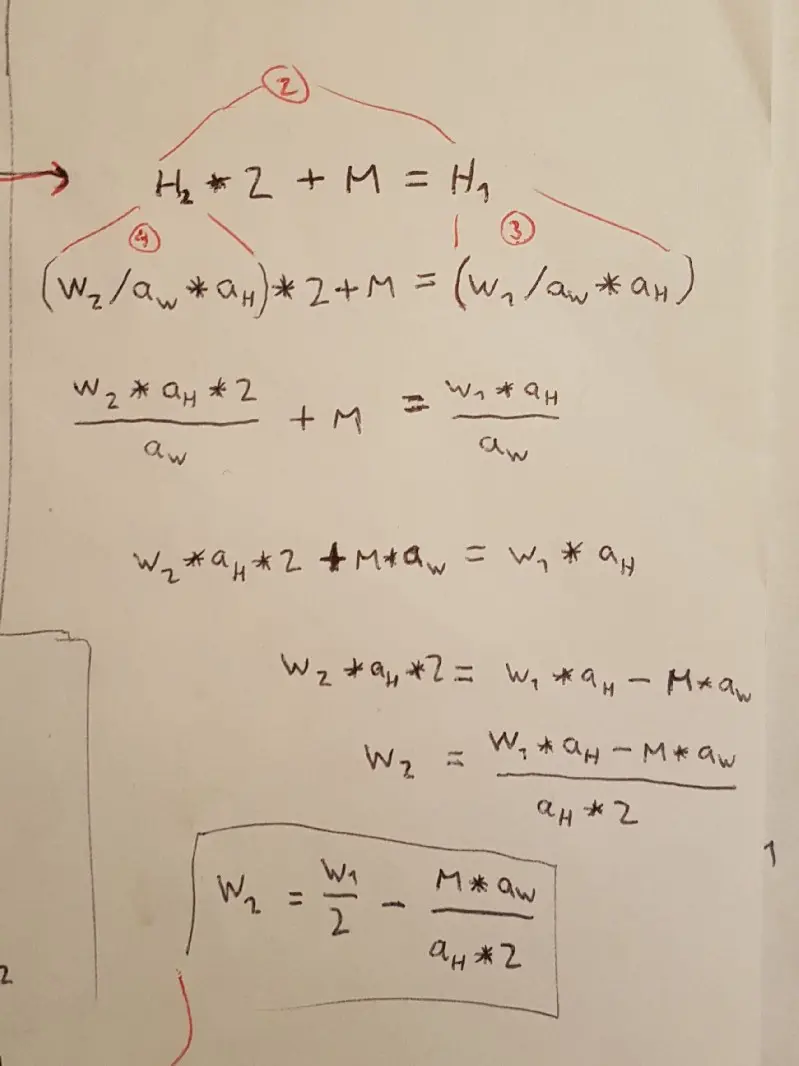 ②
H₂ * 2 + M = H₁
④ ③
(W₂/a_W * a_H) * 2 + M = (W₁/a_W * a_H)
W₂ * a_H * 2 / a_W + M = W₁ * a_H / a_W
W₂ * a_H * 2 + M * a_W = W₁ * a_H
W₂ * a_H * 2 = W₁ * a_H − M * a_W
W₂ = W₁ * a_H − M * a_W / a_H * 2
1
W₂ = W₁ / 2 − M * a_W / a_H * 2
2